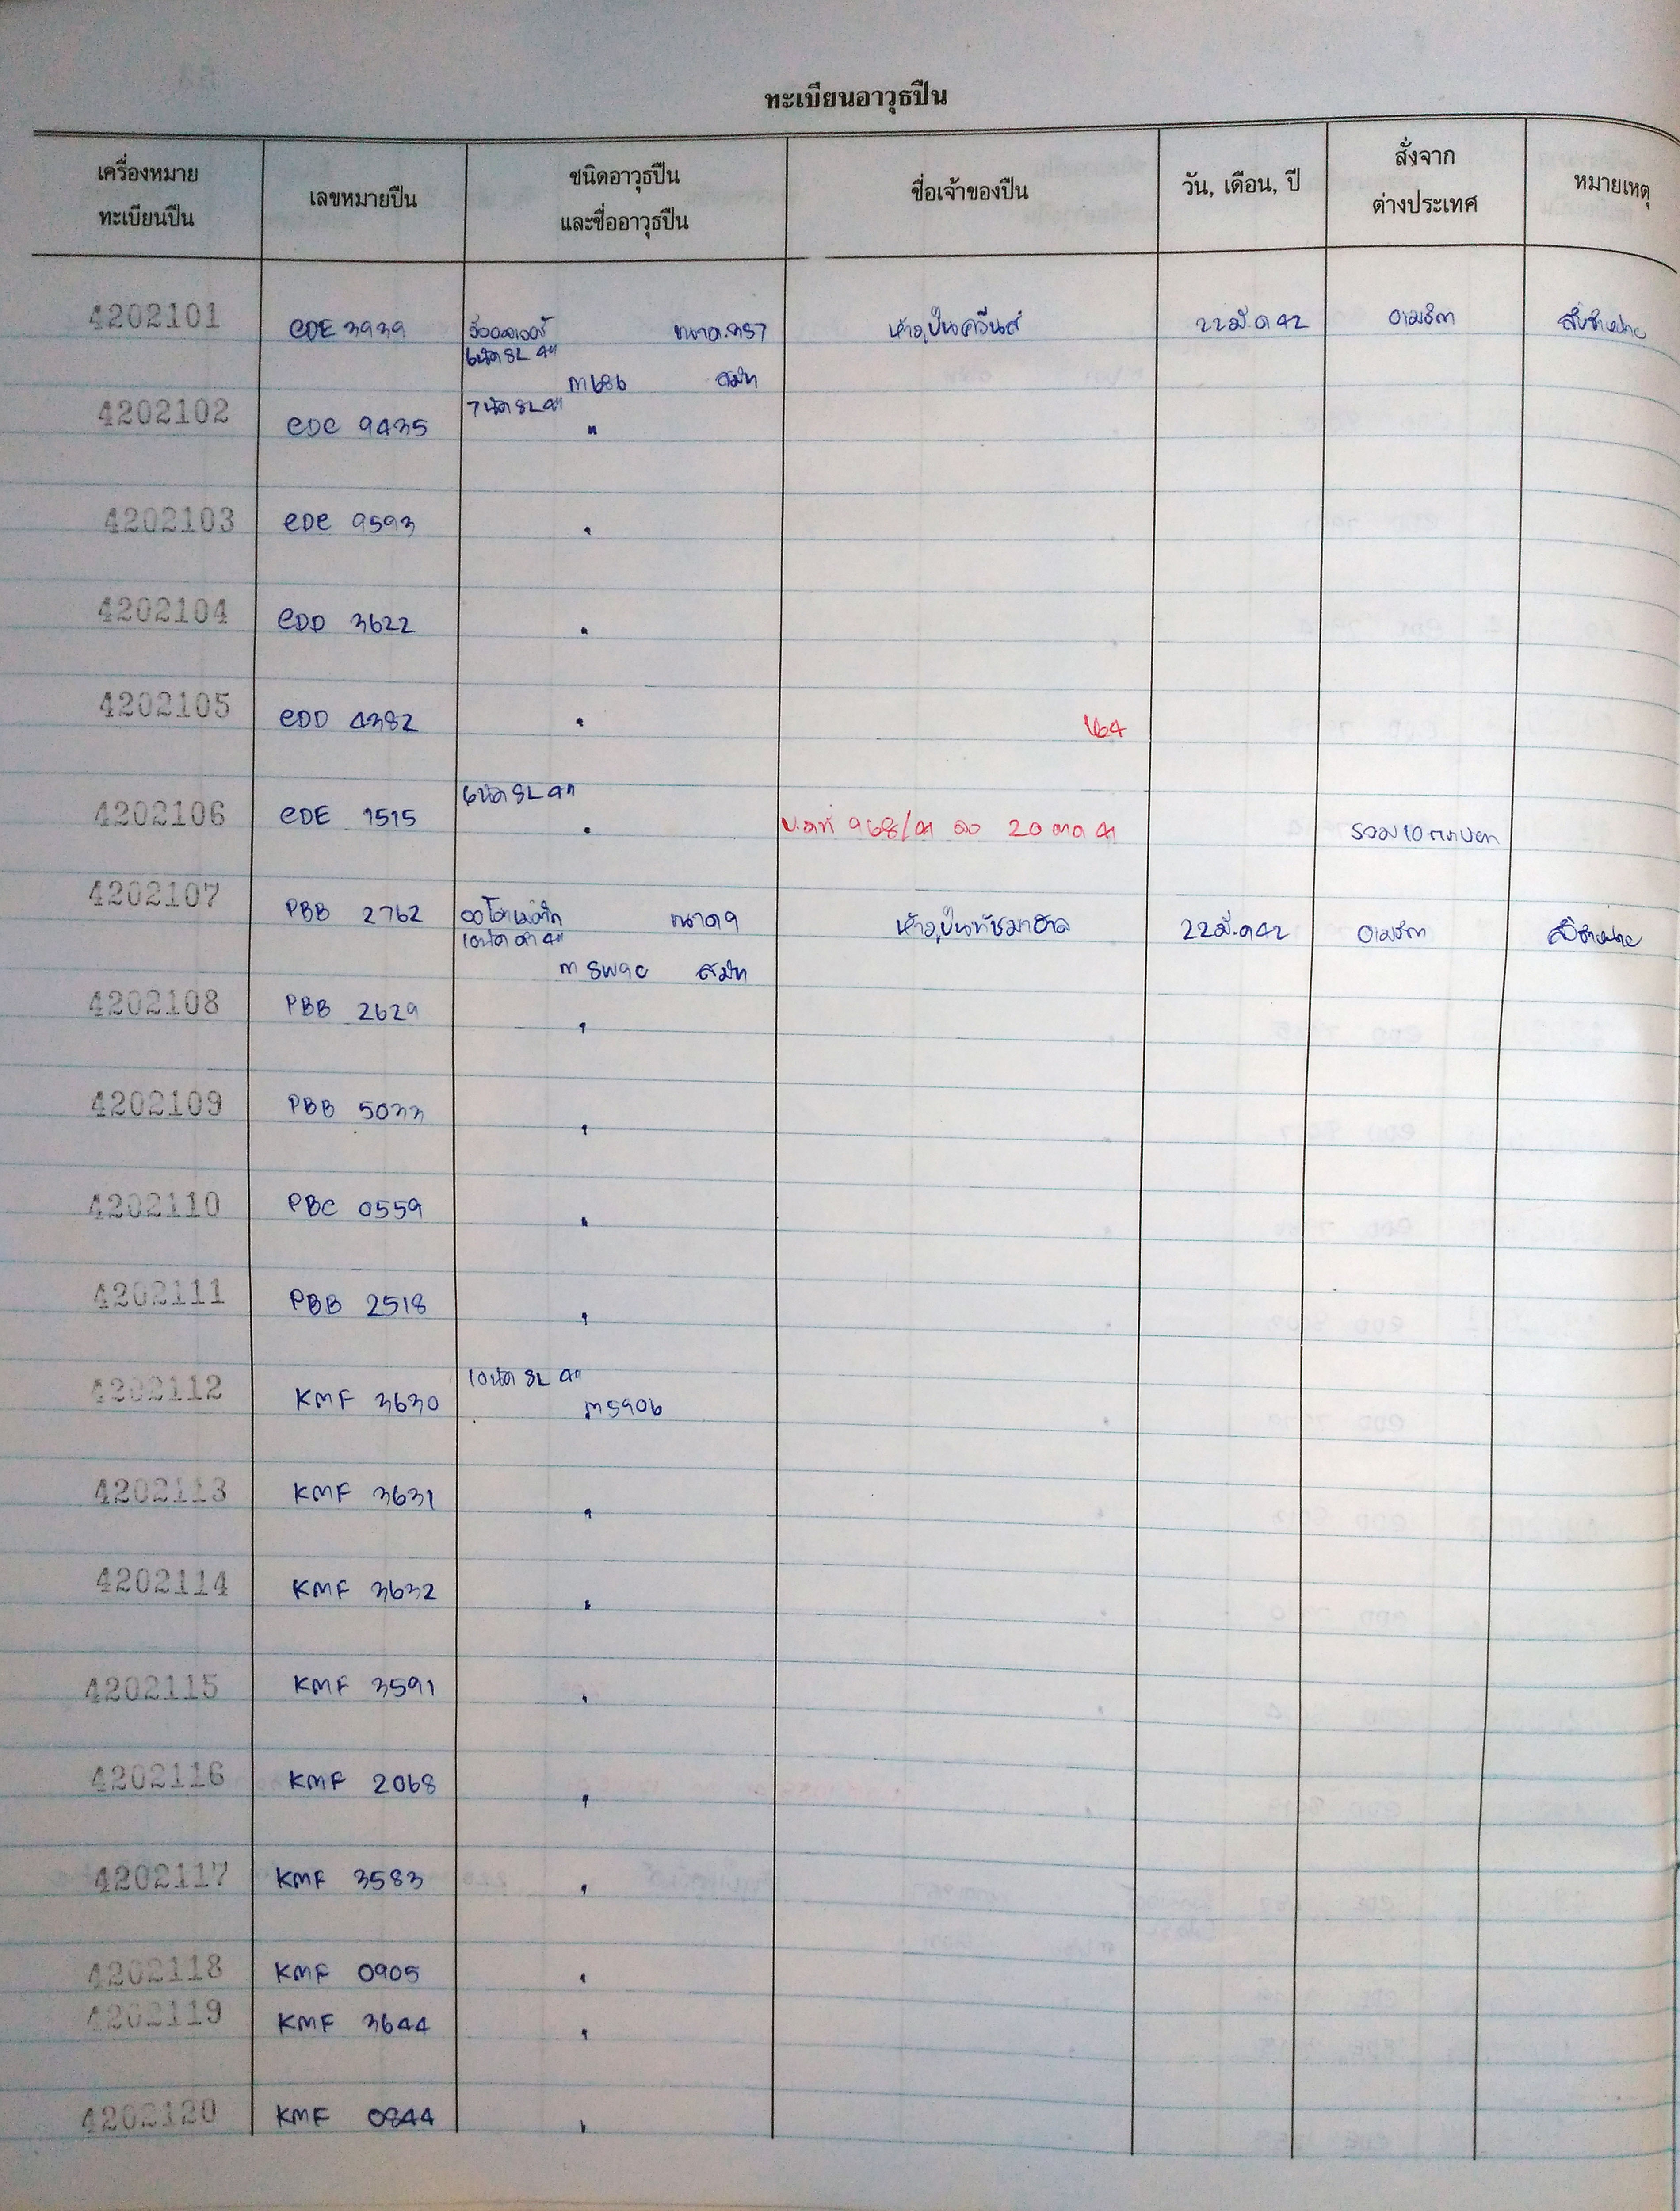 ทะเบียนอาวุธปืน
เครื่องหมาย ทะเบียนปืน เลขหมายปืน ชนิดอาวุธปืน และชื่ออาวุธปืน ชื่อเจ้าของปืน วัน, เดือน, ปี สั่งจาก ต่างประเทศ หมายเหตุ
4202101 CDE 3939 ขนาด.357 ห้างปืนควีนส์ 22 มี.ค 42 อเมริกา
6 นัด SL 4"
M686 สมิท
4202102 CDC 9435 7 นัด SL 4" "
4202103 CDC 9593 "
4202104 CDD 3622 "
4202105 CDD 4382 "
4202106 CDE 1515 6 นัด SL 4" " 968/41 ลว 20 ตค 41
4202107 PBB 2762 ออโตเมติก ขนาด 9 22 มี.ค 42 อเมริกา
10 นัด ดำ 4"
M SW9C สมิท
4202108 PBB 2629 "
4202109 PBB 5033 "
4202110 PBC 0559 "
4202111 PBB 2518 "
4202112 KMF 3630 10 นัด SL 4"
M5906
4202113 KMF 3631 "
4202114 KMF 3632 "
4202115 KMF 3591 "
4202116 KMF 2068 "
4202117 KMF 3583 "
4202118 KMF 0905 "
4202119 KMF 3644 "
4202120 KMF 0844 "